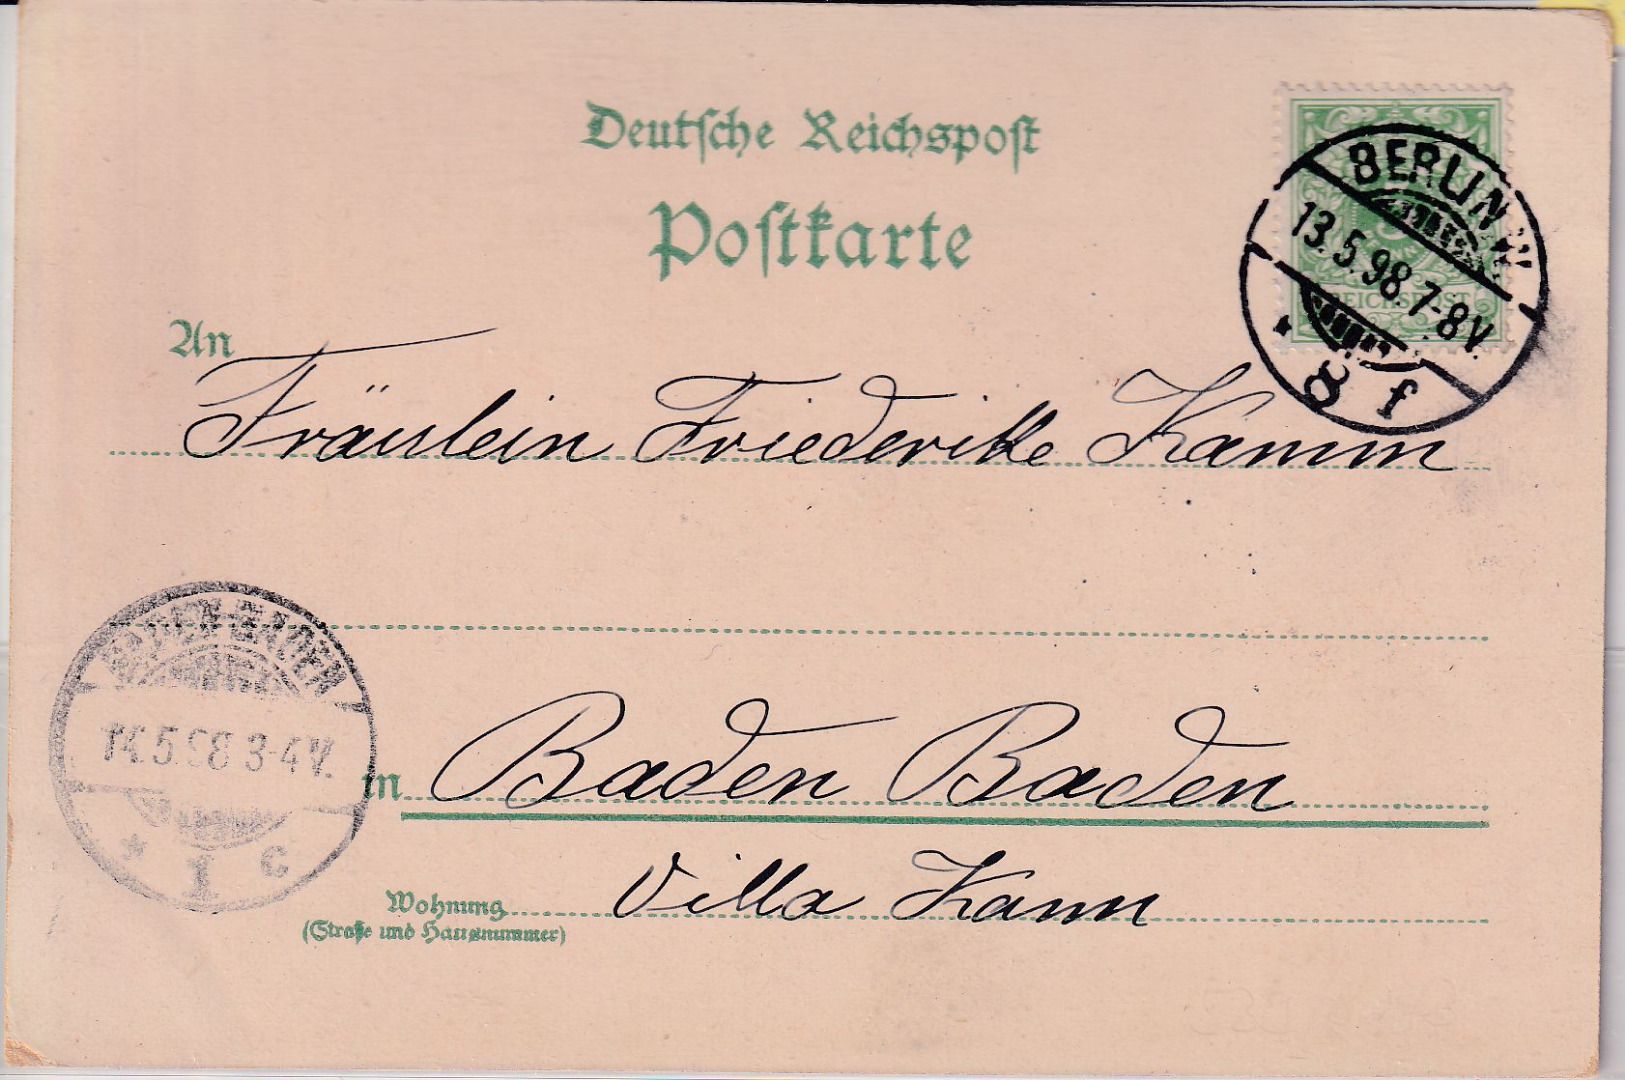 Deutsche Reichspost
Postkarte
BERLIN W
13.5.98.7-8V.
* 8 f
REICHSPOST
An
Fräulein Friederike Kamm
BADEN-BADEN
14.5.98 3-4V.
* 1 c
in Baden Baden
Wohnung Villa Kamm
(Straße und Hausnummer)